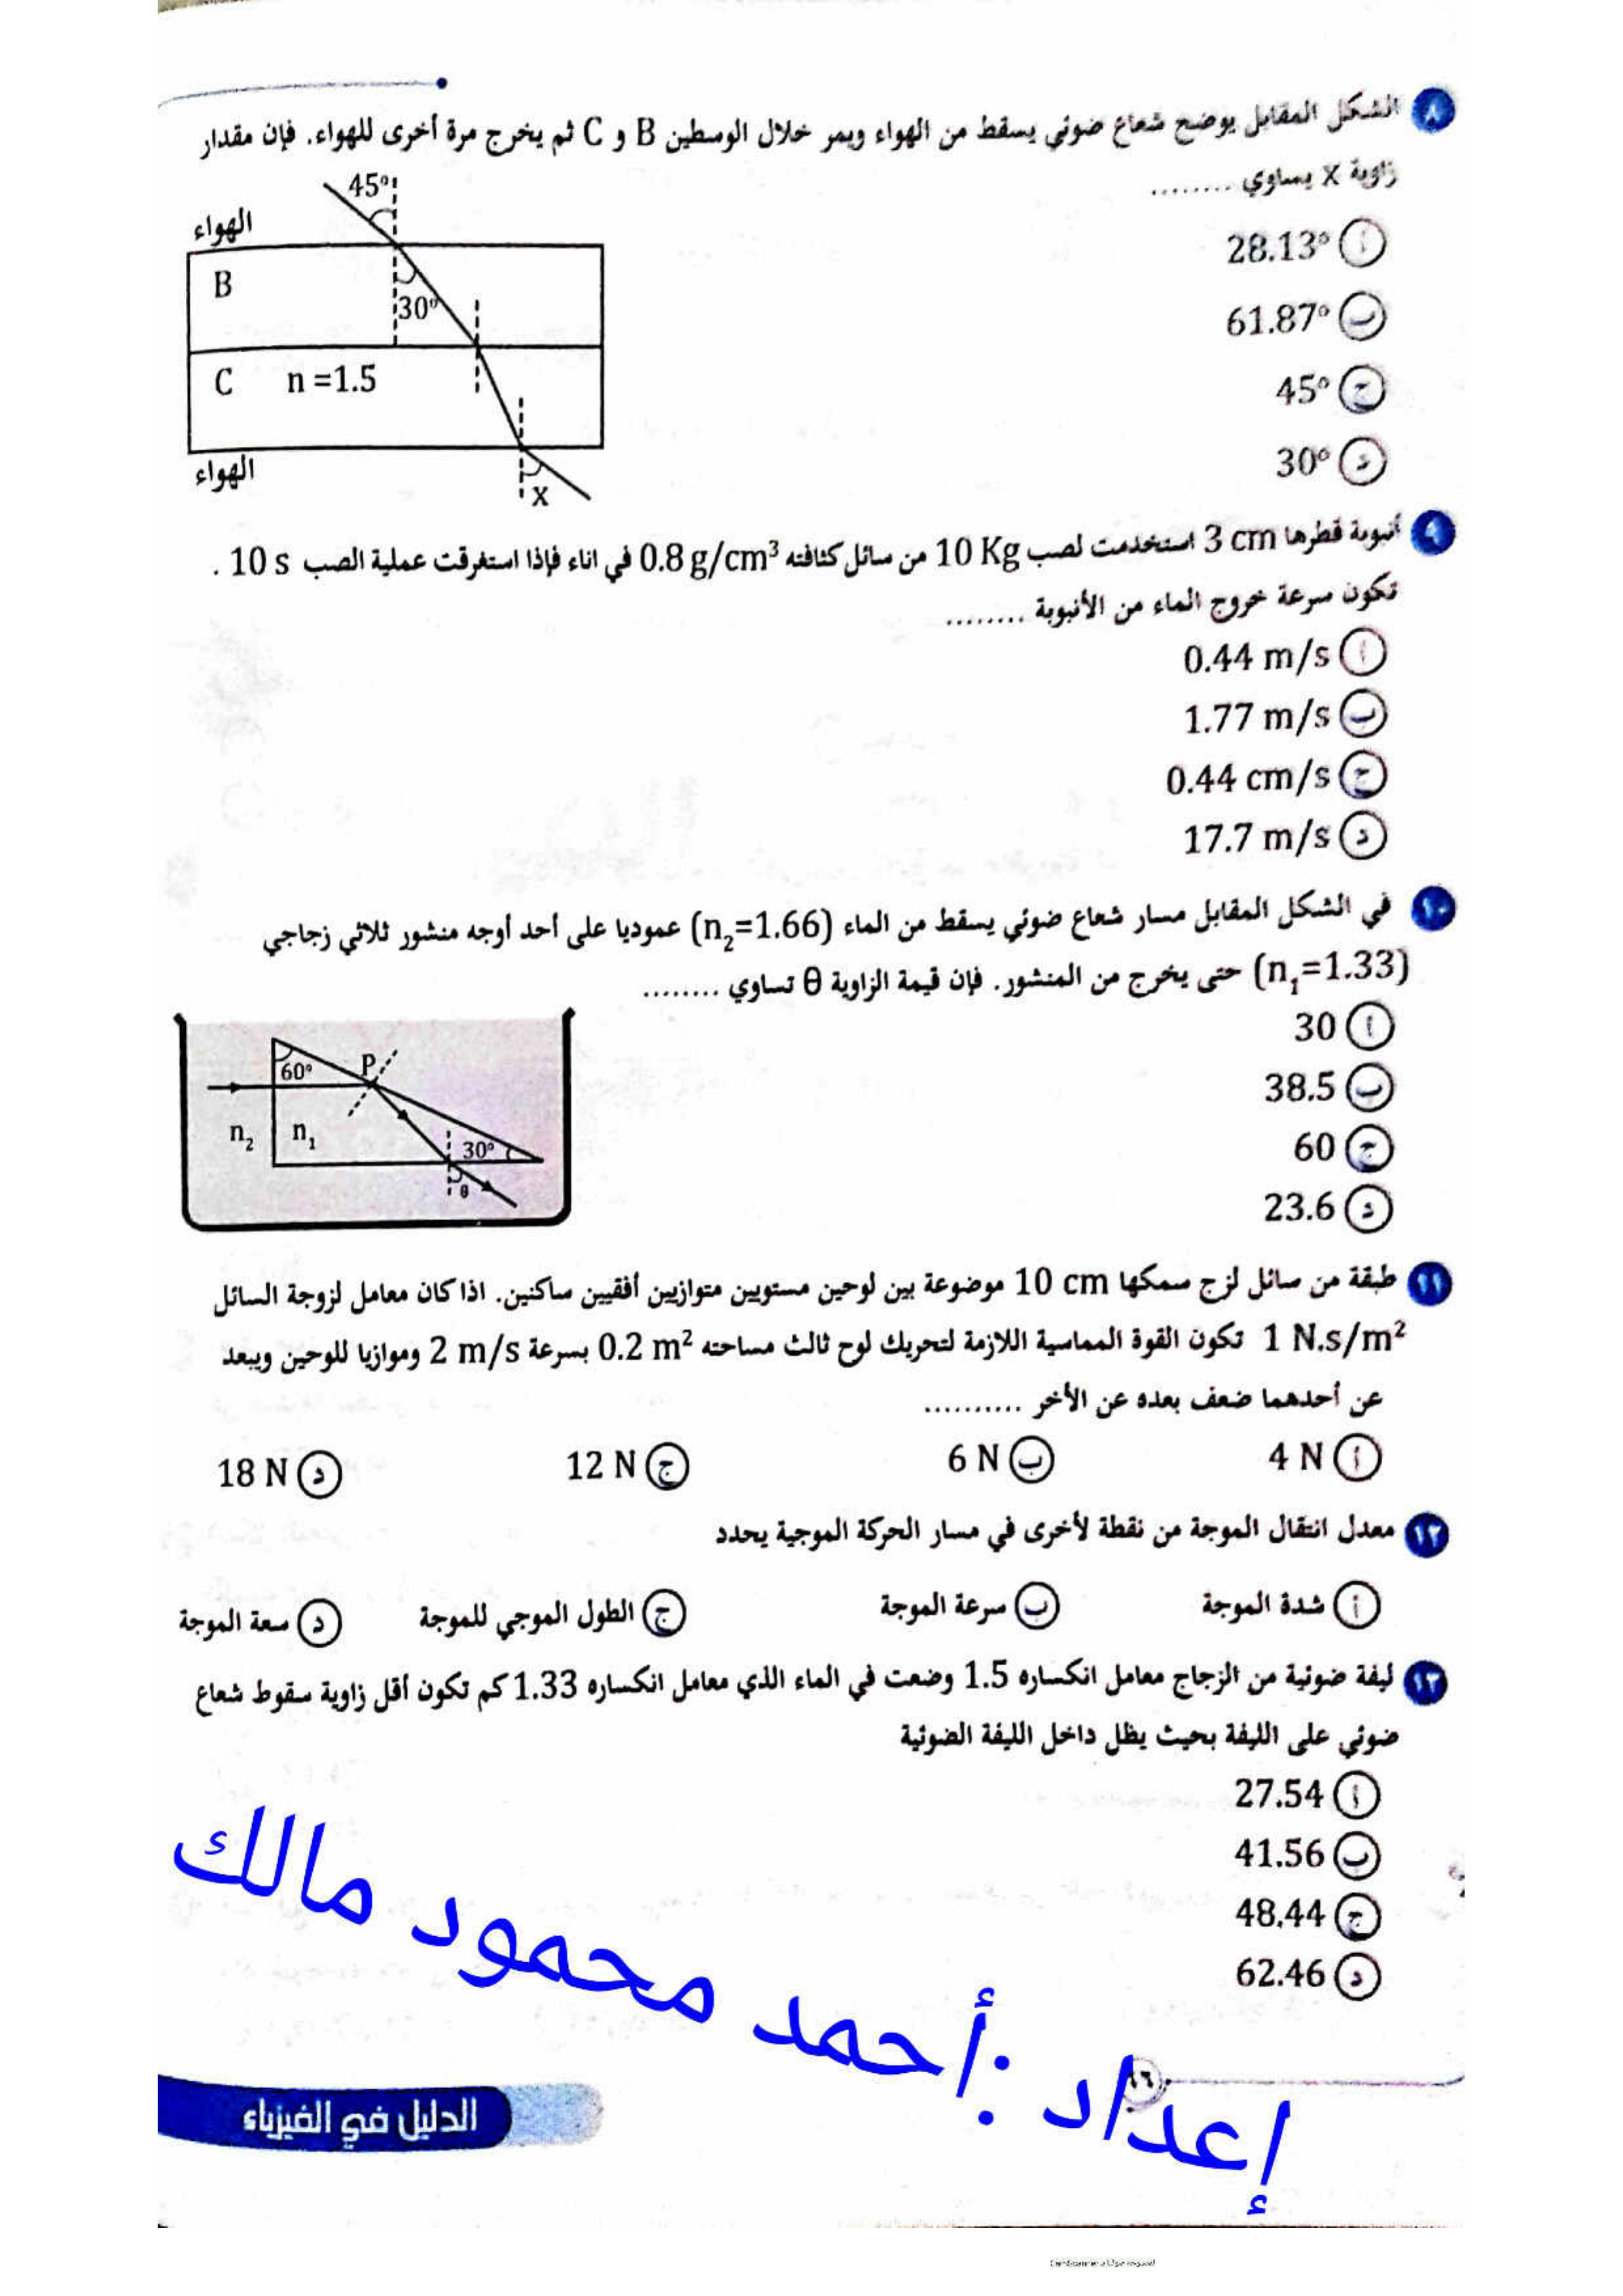 ٨ الشكل المقابل يوضح شعاع ضوئي يسقط من الهواء ويمر خلال الوسطين B و C ثم يخرج مرة أخرى للهواء. فإن مقدار
زاوية X يساوي ........
أ 28.13°
ب 61.87°
ج 45°
د 30°
45°
الهواء
B
30°
C n =1.5
الهواء
X
٩ أنبوبة قطرها 3 cm استخدمت لصب 10 Kg من سائل كثافته 0.8 g/cm³ في اناء فإذا استغرقت عملية الصب 10 s .
تكون سرعة خروج الماء من الأنبوبة ........
أ 0.44 m/s
ب 1.77 m/s
ج 0.44 cm/s
د 17.7 m/s
١٠ في الشكل المقابل مسار شعاع ضوئي يسقط من الماء (n₂=1.66) عموديا على أحد أوجه منشور ثلاثي زجاجي
(n₁=1.33) حتى يخرج من المنشور. فإن قيمة الزاوية θ تساوي ........
أ 30
ب 38.5
ج 60
د 23.6
60°
P
n₂
n₁
30°
θ
١١ طبقة من سائل لزج سمكها 10 cm موضوعة بين لوحين مستويين متوازيين أفقيين ساكنين. اذا كان معامل لزوجة السائل
1 N.s/m² تكون القوة المماسية اللازمة لتحريك لوح ثالث مساحته 0.2 m² بسرعة 2 m/s وموازيا للوحين ويبعد
عن أحدهما ضعف بعده عن الأخر ..........
أ 4 N ب 6 N ج 12 N د 18 N
١٢ معدل انتقال الموجة من نقطة لأخرى في مسار الحركة الموجية يحدد
أ شدة الموجة ب سرعة الموجة ج الطول الموجي للموجة د سعة الموجة
١٣ ليفة ضوئية من الزجاج معامل انكساره 1.5 وضعت في الماء الذي معامل انكساره 1.33 كم تكون أقل زاوية سقوط شعاع
ضوئي على الليفة بحيث يظل داخل الليفة الضوئية
أ 27.54
ب 41.56
ج 48.44
د 62.46
إعداد :أحمد محمود مالك
١٦
الدليل في الفيزياء